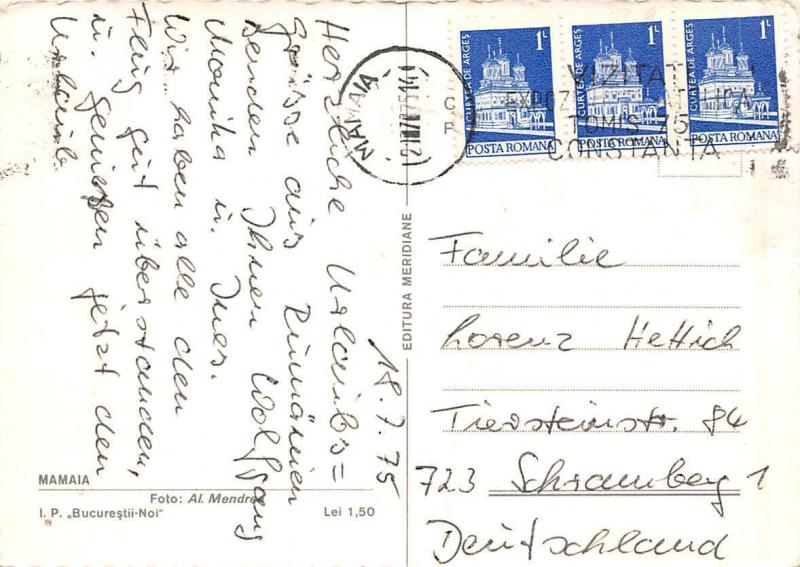 18.7.75
Herzliche Urlaubs=
Grüsse aus Rumänien
senden Ihnen Wolfgang
Monika u. Ines.
Wir haben alle den
Flug gut überstanden,
u. genießen jetzt den
Urlaub
MAMAIA
Foto: Al. Mendrea
I. P. „Bucureştii-Noi"
Lei 1,50
EDITURA MERIDIANE
MAMAIA
CURTEA DE ARGEŞ
1L
POSTA ROMANA
CURTEA DE ARGEŞ
1L
POSTA ROMANA
CURTEA DE ARGEŞ
1L
POSTA ROMANA
VIZITAŢI
TOMIS 75
CONSTANŢA
Familie
Lorenz Hettich
Tiersteinstr. 84
723 Schramberg 1
Deutschland